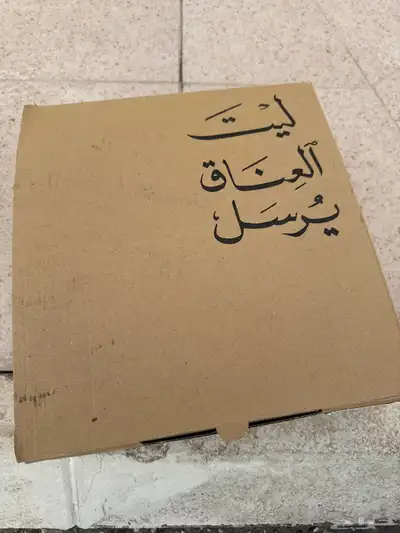 ليْتَ
ٱلعِنَاق
يُرسَل